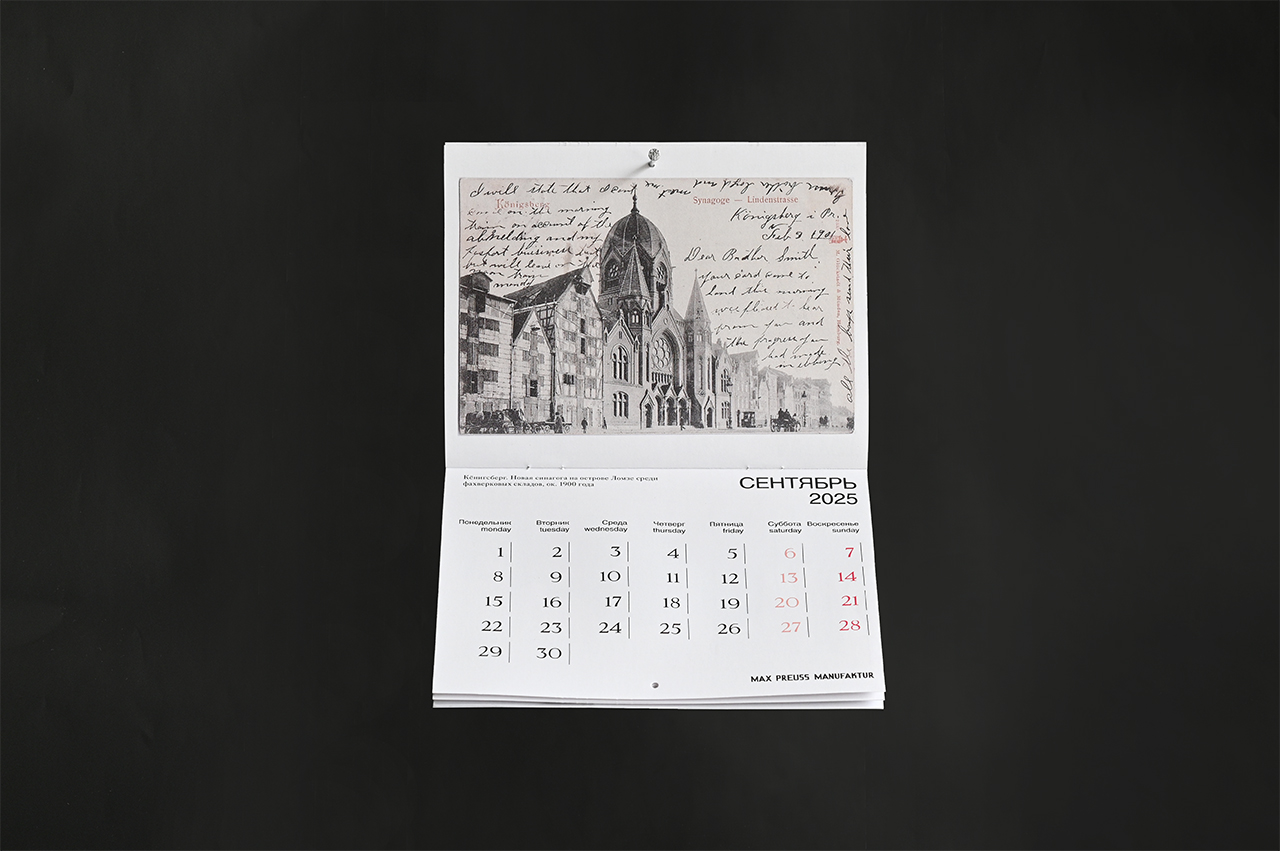 I will state that I cant
Königsberg
Synagoge — Lindenstrasse
come on the morning
train on account of the
and my
business but
but will leave on the
Königsberg i Pr.
Feb 9 1901
Dear Brother Smith
your card came to
hand this morning
was pleased to hear
from you and
the progress you
had made
Кёнигсберг. Новая синагога на острове Ломзе среди
фахверковых складов, ок. 1900 года
СЕНТЯБРЬ
2025
Понедельник Вторник Среда Четверг Пятница Суббота Воскресенье
monday tuesday wednesday thursday friday saturday sunday
1 2 3 4 5 6 7
8 9 10 11 12 13 14
15 16 17 18 19 20 21
22 23 24 25 26 27 28
29 30
MAX PREUSS MANUFAKTUR